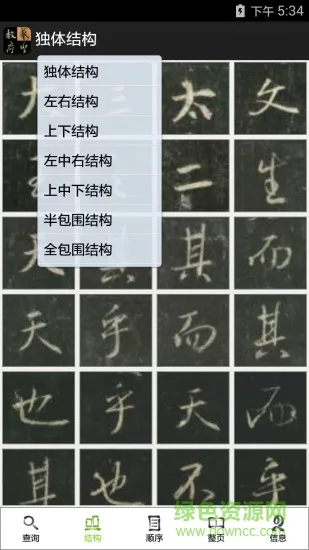 下午 5:34
独体结构
独体结构
左右结构
上下结构
左中右结构
上中下结构
半包围结构
全包围结构
三 太 文
二 生
其 其 而
天 乎 而 其
也 乎 天 而
其 也 不 乎
查询 结构 顺序 整页 信息
绿色资源网
www.downcc.com